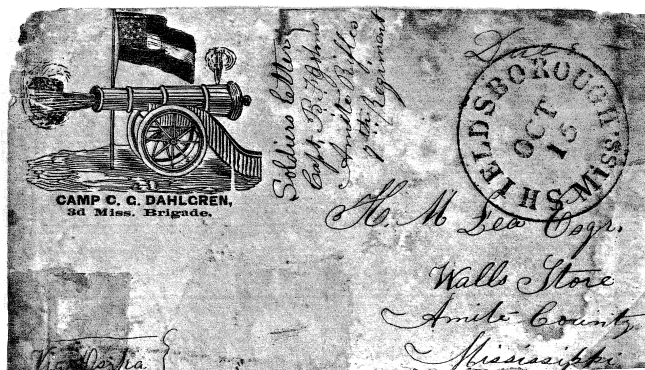 CAMP C. G. DAHLGREN,
3d Miss. Brigade.
Soldiers Letter
Capt. B. F. Johns
Amite Rifles
7th Regiment
Due
SHIELDSBOROUGH. Miss
OCT
15
H. M Lea Esqr.
Walls Store
Amite County
Mississippi
Via Osyka